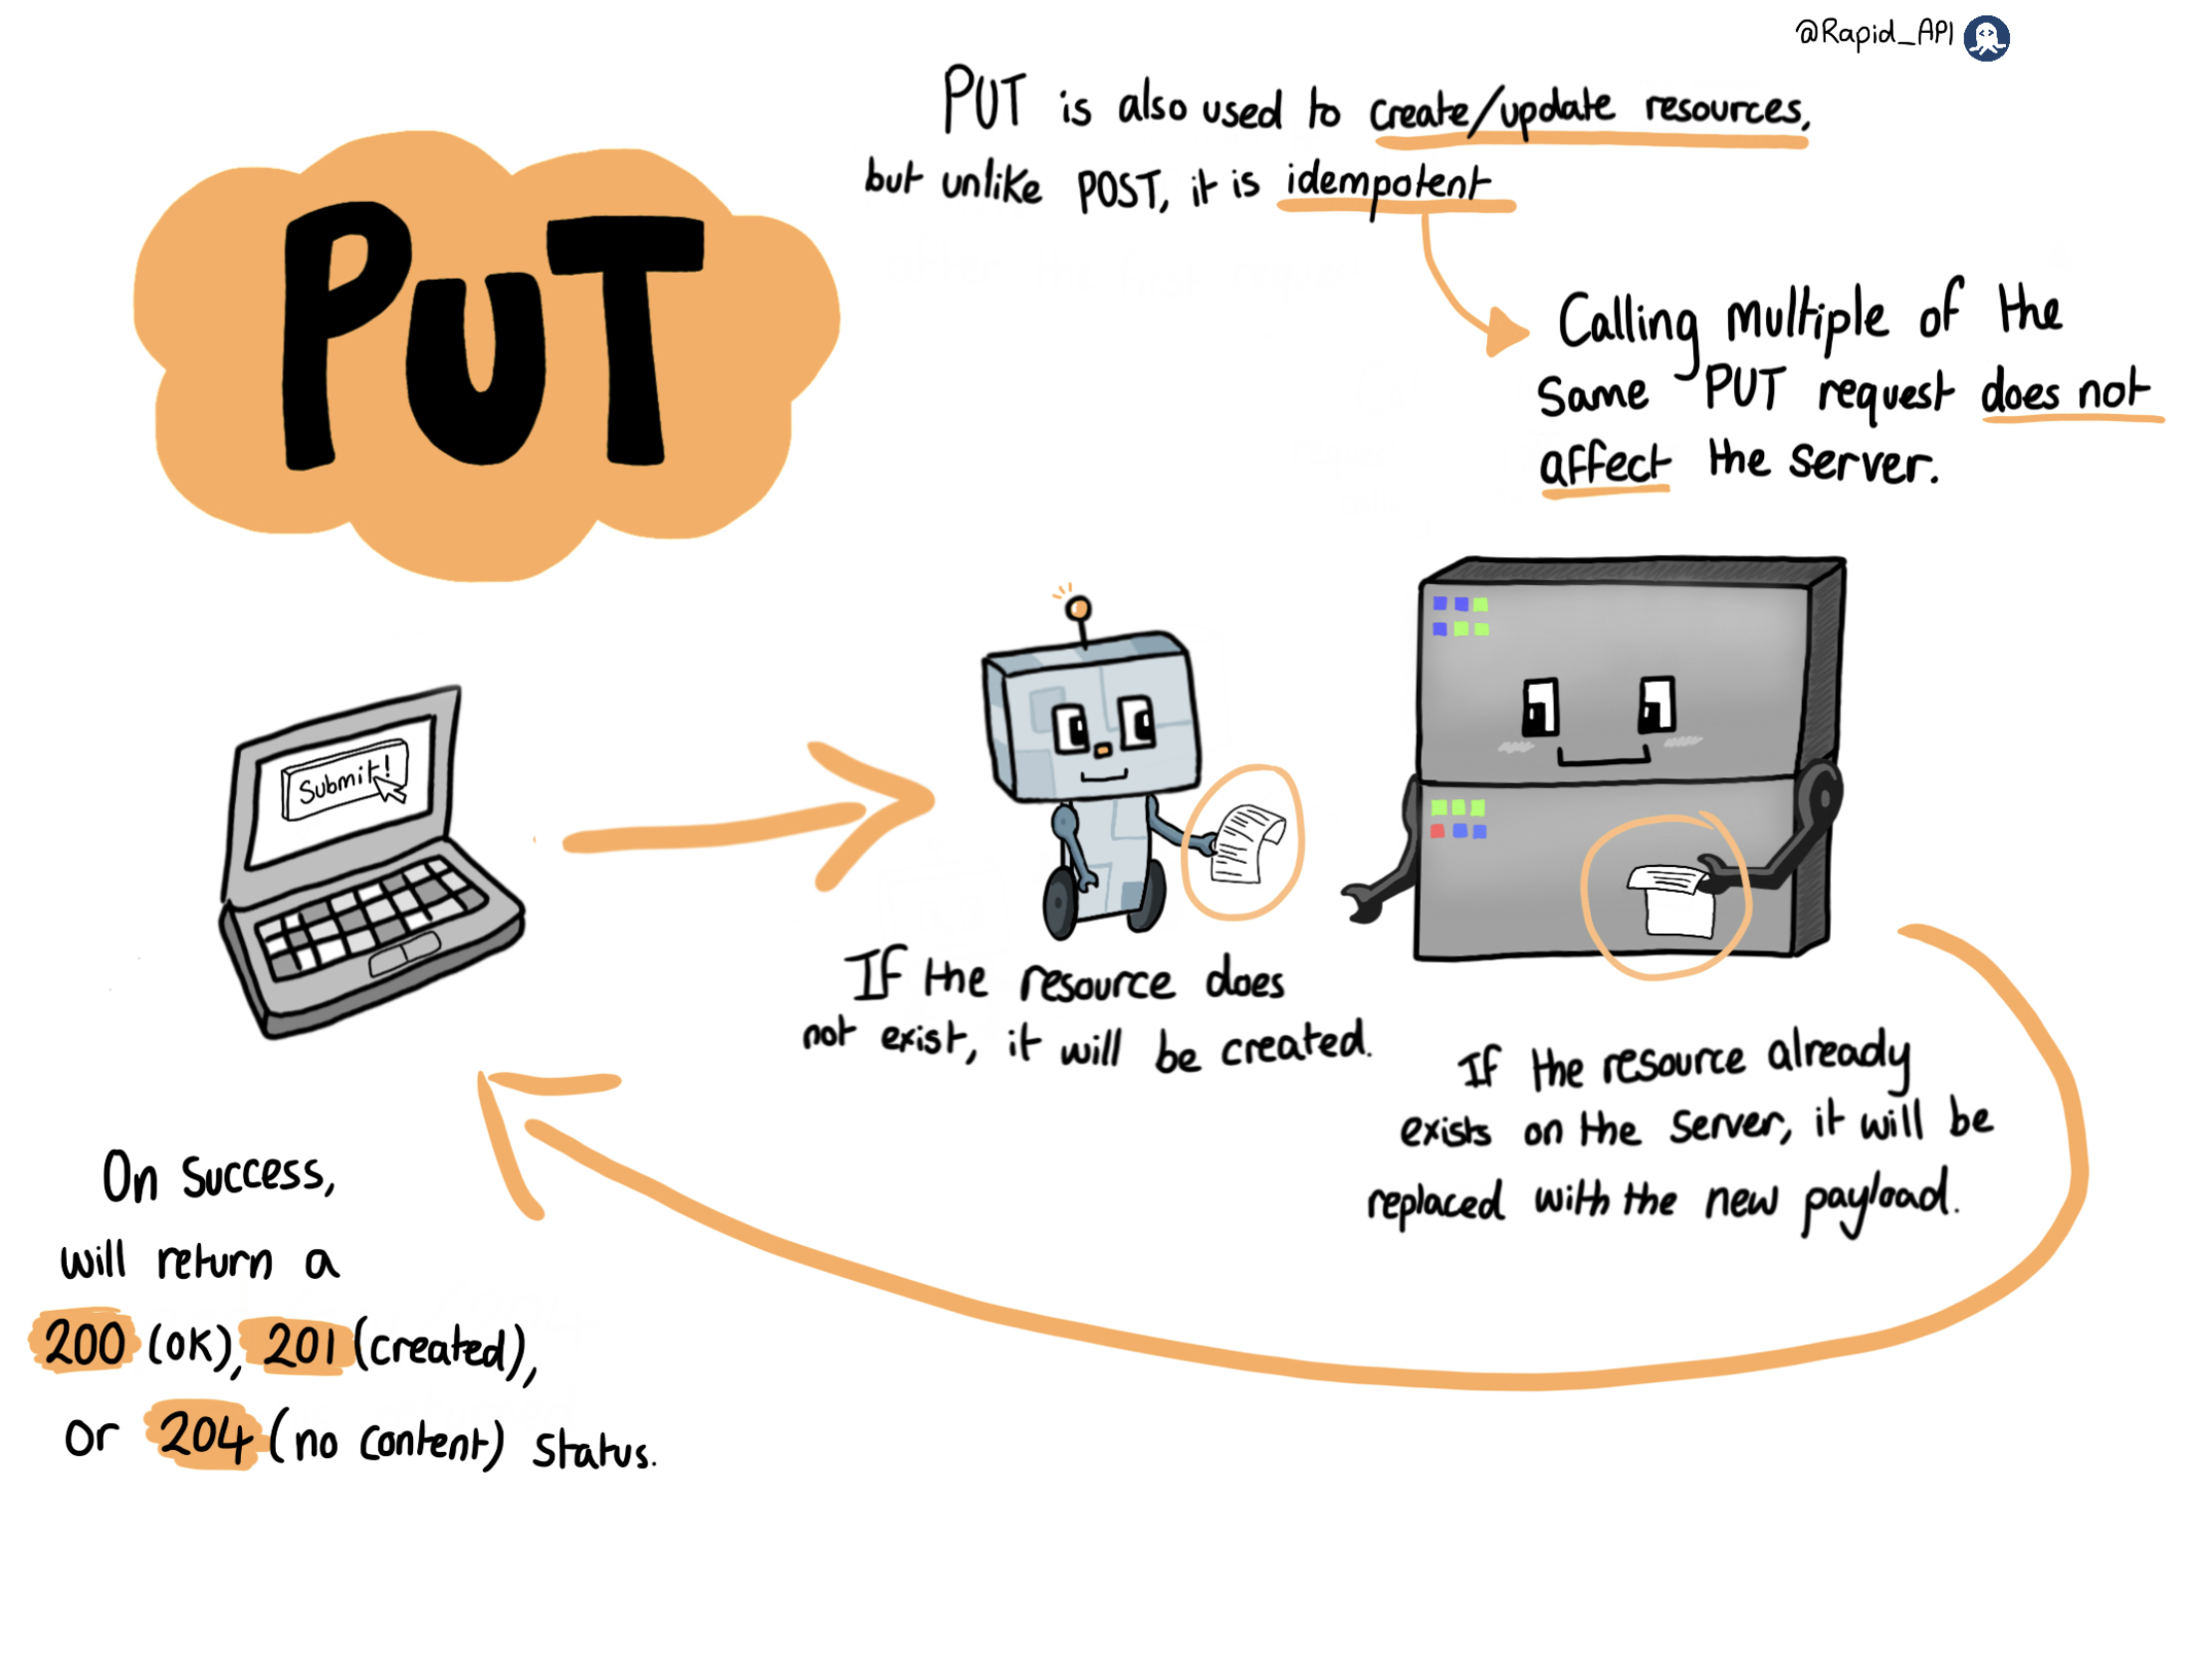 @Rapid_API
PUT is also used to create/update resources,
but unlike POST, it is idempotent
PUT
Calling multiple of the
same PUT request does not
affect the server.
Submit!
If the resource does
not exist, it will be created.
If the resource already
exists on the server, it will be
replaced with the new payload.
On success,
will return a
200 (OK), 201 (created),
or 204 (no content) status.